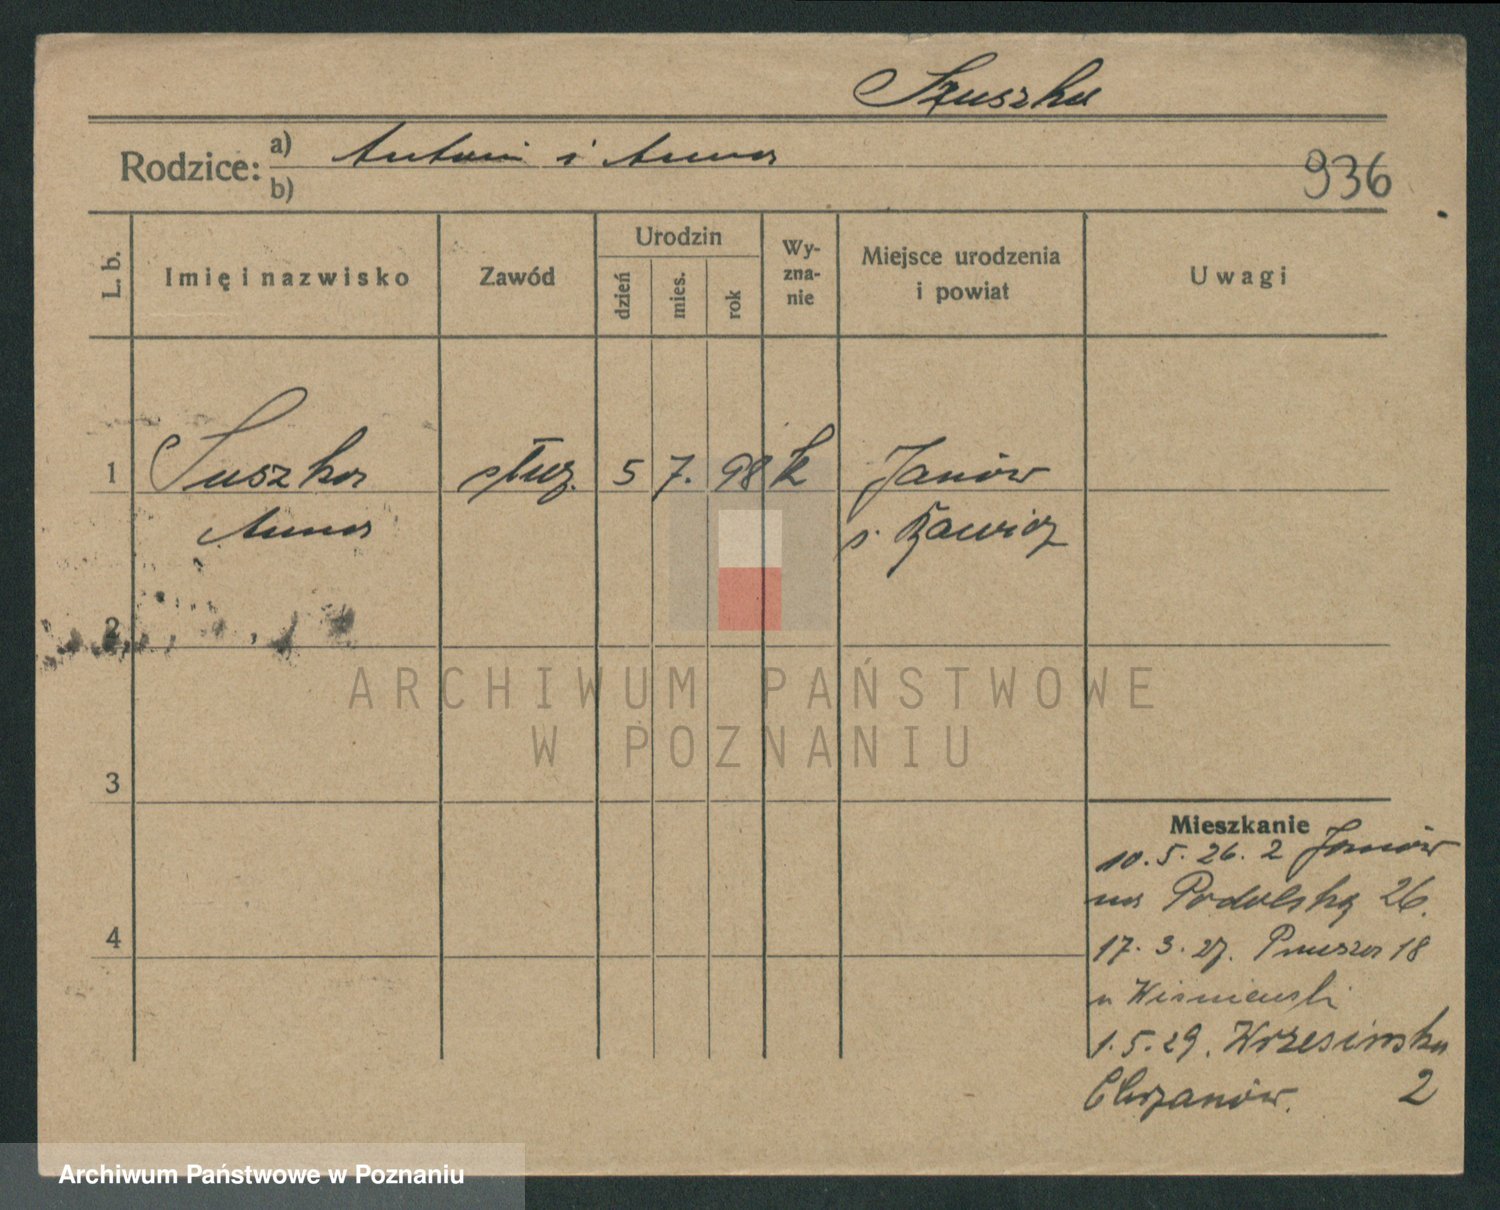 Szuszka
Rodzice: a) Antoni i Anna
b)
936
L. b.
Imię i nazwisko
Zawód
Urodzin
dzień
mies.
rok
Wy-
zna-
nie
Miejsce urodzenia
i powiat
Uwagi
1 Suszka służ. 5 7. 98 k Janów
Anna
2
ARCHIWUM PAŃSTWOWE
W POZNANIU
3
Mieszkanie
10. 5. 26. z Janów
na Podolską 26.
4
17. 3. 27. 18
u Wiśniewski
1. 5. 29. Wrzesińska
Chrzanów. 2
Archiwum Państwowe w Poznaniu